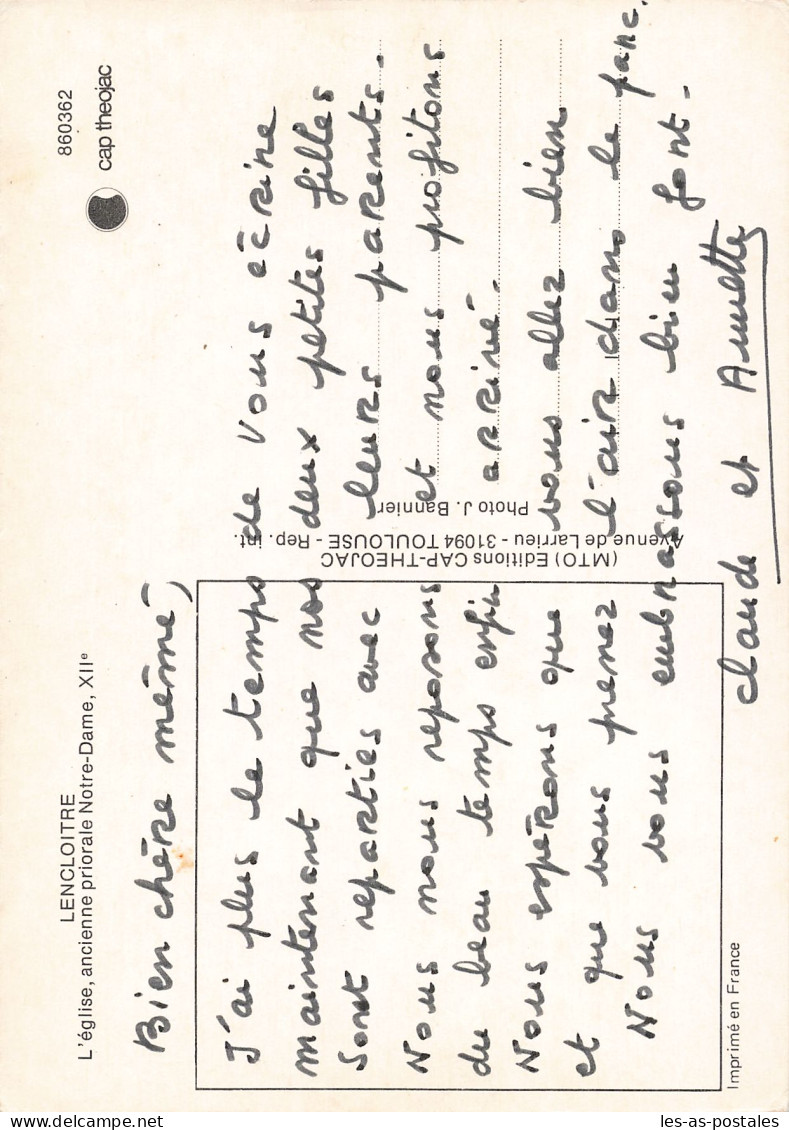 LENCLOITRE
L'église, ancienne priorale Notre-Dame, XIIe
860362
cap theojac
Bien chère mémé,
J'ai plus le temps de vous écrire
maintenant que nos deux petites filles
sont reparties avec leurs parents.
Nous nous reposons et nous profitons
du beau temps enfin arrivé.
Nous espérons que vous allez bien
et que vous prenez l'air dans le parc.
Nous vous embrassons bien fort.
Claude et Annette
(MTO) Editions CAP-THEOJAC
Avenue de Larrieu - 31094 TOULOUSE - Rep. int.
Photo J. Bannier
Imprimé en France
les-as-postales